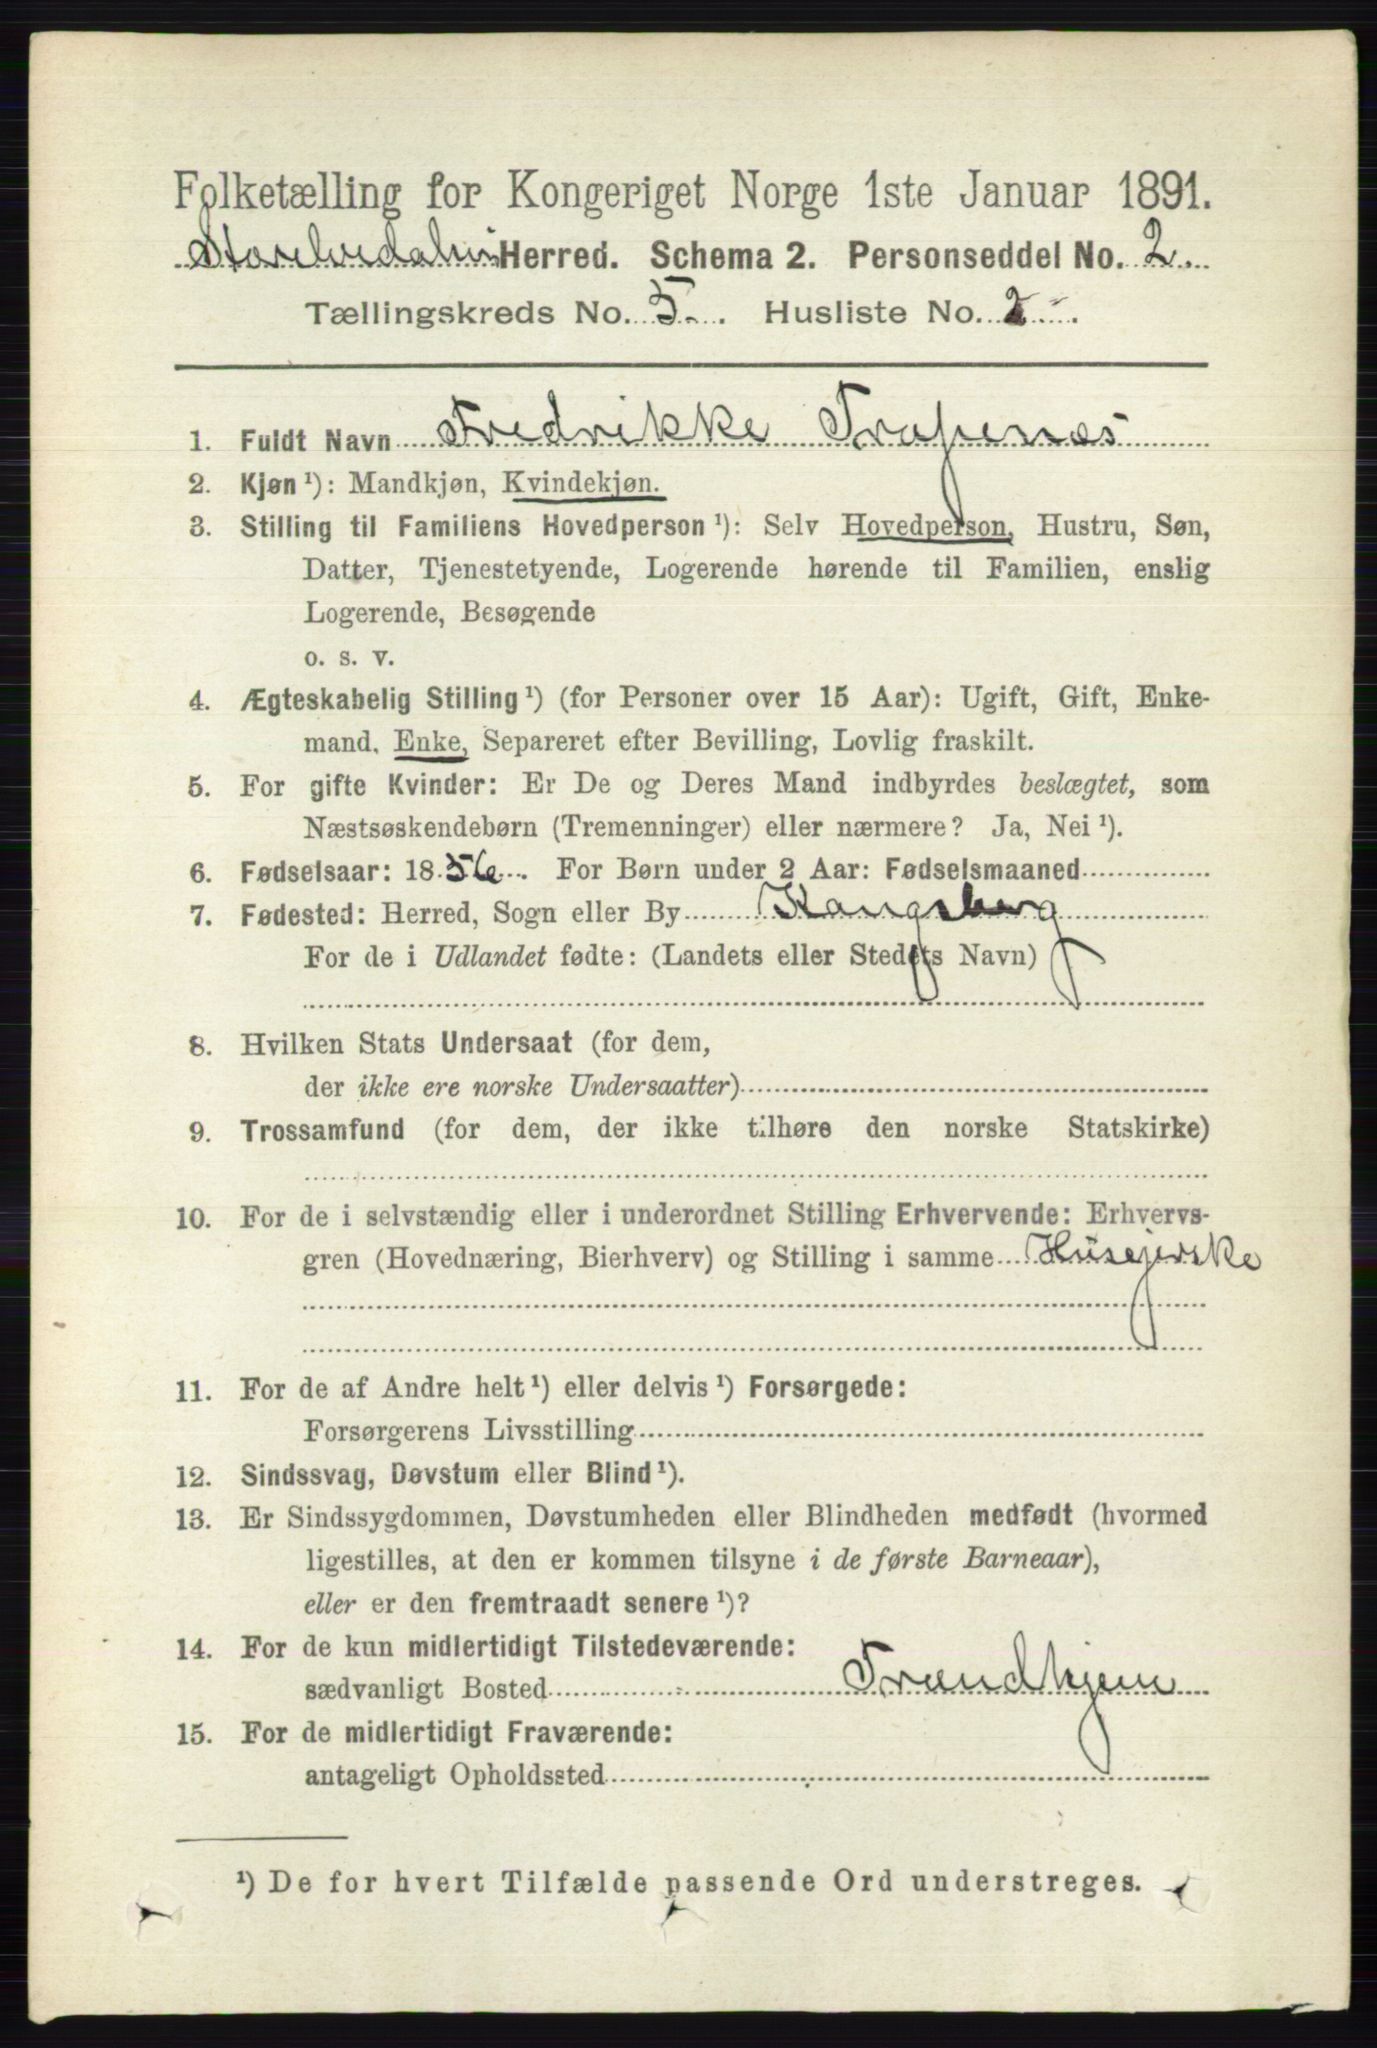 Folketælling for Kongeriget Norge 1ste Januar 1891.
Storelvedalen Herred. Schema 2. Personseddel No. 2.
Tællingskreds No. 5. Husliste No. 2
1. Fuldt Navn Fredrikke
2. Kjøn ¹): Mandkjøn, Kvindekjøn.
3. Stilling til Familiens Hovedperson ¹): Selv Hovedperson, Hustru, Søn,
Datter, Tjenestetyende, Logerende hørende til Familien, enslig
Logerende, Besøgende
o. s. v.
4. Ægteskabelig Stilling ¹) (for Personer over 15 Aar): Ugift, Gift, Enke-
mand, Enke, Separeret efter Bevilling, Lovlig fraskilt.
5. For gifte Kvinder: Er De og Deres Mand indbyrdes beslægtet, som
Næstsøskendebørn (Tremenninger) eller nærmere? Ja, Nei ¹).
6. Fødselsaar: 1856. For Børn under 2 Aar: Fødselsmaaned
7. Fødested: Herred, Sogn eller By Kongsberg
For de i Udlandet fødte: (Landets eller Stedets Navn)
8. Hvilken Stats Undersaat (for dem,
der ikke ere norske Undersaatter)
9. Trossamfund (for dem, der ikke tilhøre den norske Statskirke)
10. For de i selvstændig eller i underordnet Stilling Erhvervende: Erhvervs-
gren (Hovednæring, Bierhverv) og Stilling i samme Husejerske
11. For de af Andre helt ¹) eller delvis ¹) Forsørgede:
Forsørgerens Livsstilling
12. Sindssvag, Døvstum eller Blind ¹).
13. Er Sindssygdommen, Døvstumheden eller Blindheden medfødt (hvormed
ligestilles, at den er kommen tilsyne i de første Barneaar),
eller er den fremtraadt senere ¹)?
14. For de kun midlertidigt Tilstedeværende:
sædvanligt Bosted Trondhjem
15. For de midlertidigt Fraværende:
antageligt Opholdssted
¹) De for hvert Tilfælde passende Ord understreges.